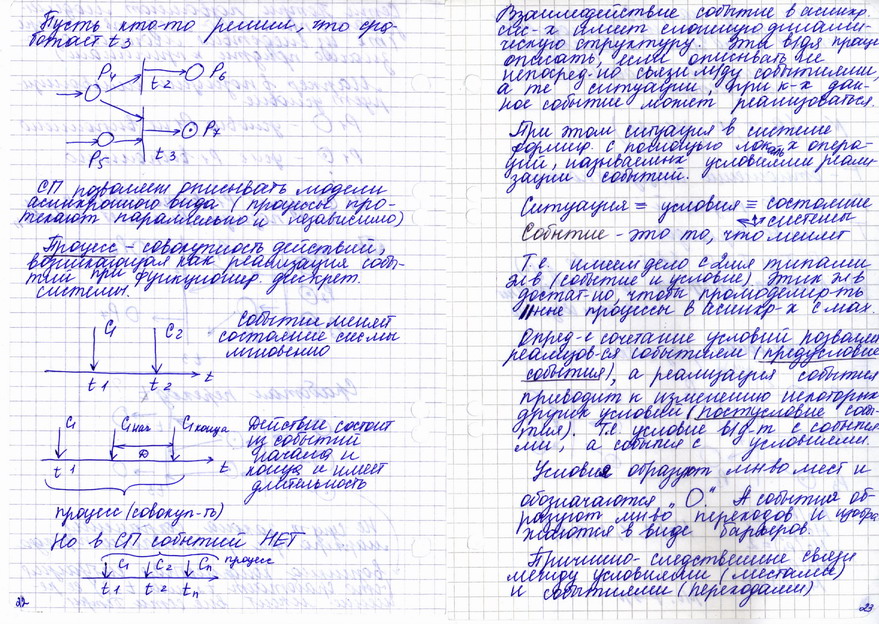 Пусть кто-то решил, что сра-
ботает t3
P4
t2
P6
P5
t3
P7
СП позволяет описывать модели
асинхронного вида (процессы про-
текают параллельно и независимо)
Процесс - совокупность действий,
возникающая как реализация собы-
тий при функционир. дискрет.
системы.
C1
C2
t1
t2
t
Событие меняет
состояние сисмы
мгновенно
C1
C1 нач
C1 конца
t1
D
t
Действие состоит
из событий
начала и
конца и имеет
длительность
процесс (совокуп-ть)
Но в СП событий НЕТ
процесс
C1
C2
Cn
t1
t2
tn
22
Взаимодействие событие в асинхр.
сис-х имеет сложную динами-
ческую структуру. Эти вз/дя проще
описать, если описывать не
непосред-но связи м/ду событиями,
а те ситуации, при к-х дан-
ное событие может реализоваться.
При этом ситуация в системе
формир. с помощью лок-х опера-
ций, называемых условиями реали-
зации событий.
Ситуация ≡ условия ≡ состояние
системы
Событие - это то, что меняет
Т.е. имеем дело с 2мя типами
эл-в (событие и условие). Этих эл-в
достат-но, чтобы промоделир-ть
нные процессы в асинхр-х с/мах.
Опред-е сочетание условий позволяет
реализов-ся событием (предусловие
события), а реализация события
приводит к изменению некоторых
других условий (постусловие собы-
тия). Т.е. условие вз/д-т с событыя
ми, а события с условиями.
Условия образуют мн-во мест и
обозначаются „О“. А события об-
разуют мн-во переходов и изобра-
жаются в виде барьеров.
Причинно-следственные связи
между условиями (местами)
и событиями (переходами)
23